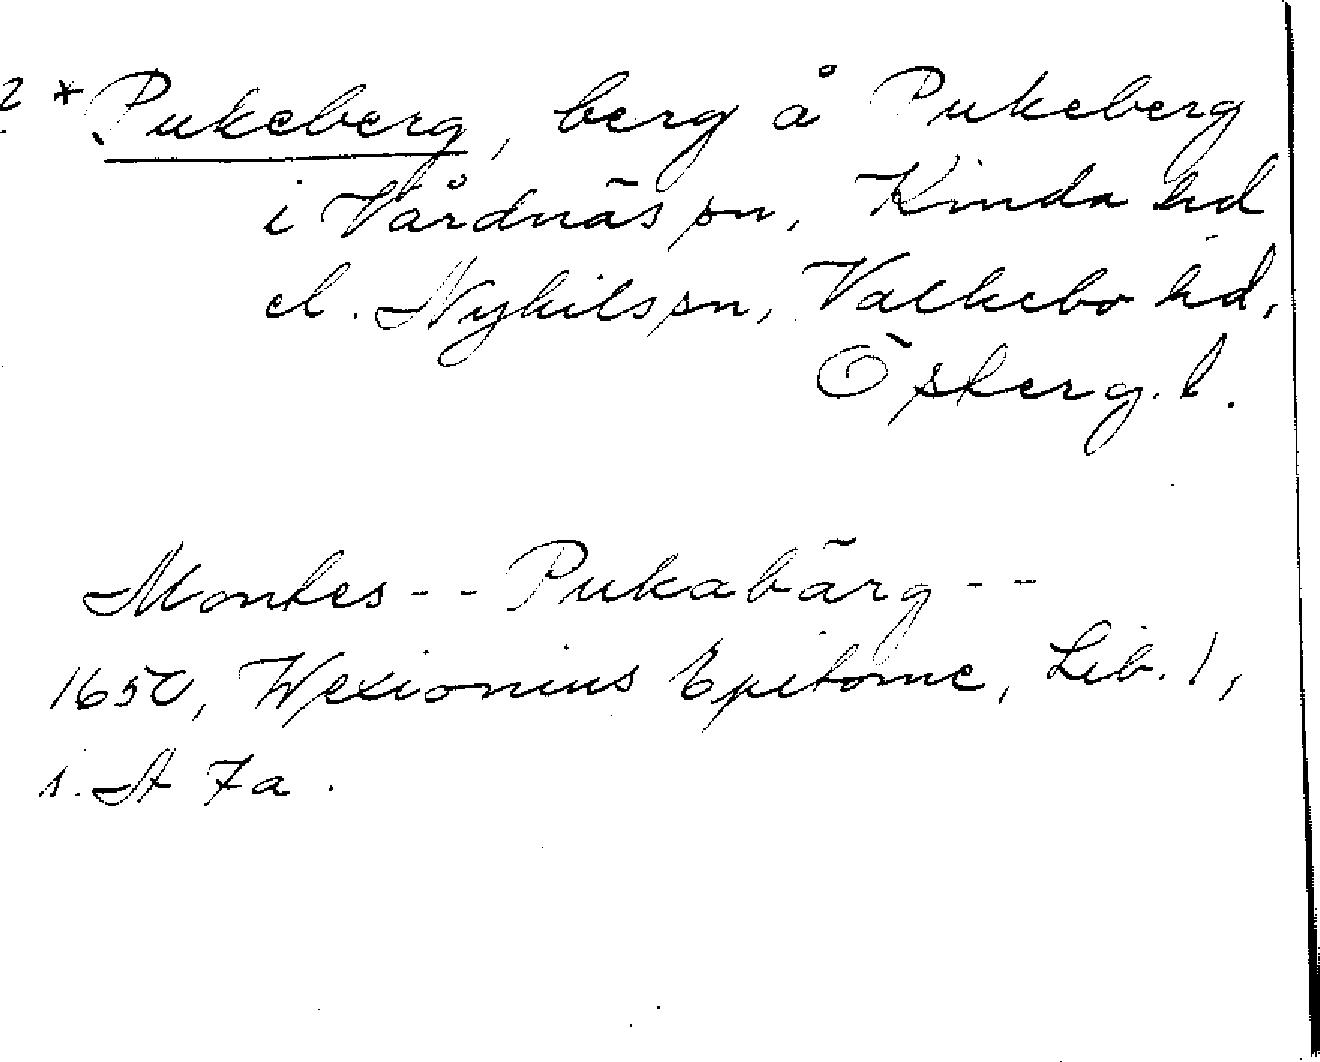 ? * Pukeberg, berg å Pukeberg
i Vårdnäs sn, Kinda hd
el. Nykils sn, Valkebo hd,
Österg. l.
Montes -- Pukabärg --
1650, Wexionius Epitome, Lib. 1,
s. A 7a.